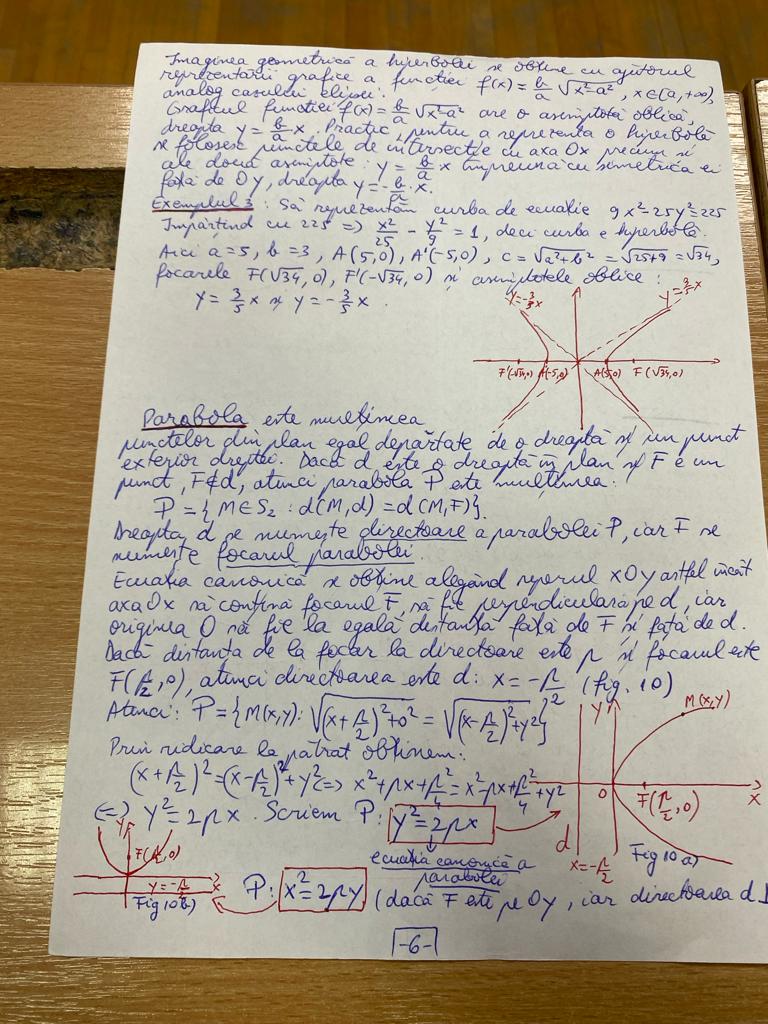 Imaginea geometrică a hiperbolei se obține cu ajutorul
reprezentării grafice a funcției f(x) = b/a √(x²-a²), x∈(a,+∞),
analog cazului elipsei.
Graficul funcției f(x) = b/a √(x²-a²) are o asimptotă oblică,
dreapta y = b/a x. Practic, pentru a reprezenta o hiperbolă
se folosesc punctele de intersecție cu axa Ox precum și
cele două asimptote: y = b/a x împreună cu simetrica ei
față de Oy, dreapta y = -b/a · x.
Exemplul 3: Să reprezentăm curba de ecuație 9x²-25y²=225
Împărțind cu 225 => x²/25 - y²/9 = 1, deci curba e hiperbolă.
Aici a=5, b=3, A(5,0), A'(-5,0), c = √(a²+b²) = √(25+9) = √34,
focarele F(√34, 0), F'(-√34, 0) și asimptotele oblice:
y = 3/5 x și y = -3/5 x.
y=-3/5x
y=3/5x
F'(-√34,0) A'(-5,0) A(5,0) F(√34,0)
Parabola este mulțimea
punctelor din plan egal depărtate de o dreaptă și un punct
exterior dreptei. Dacă d este o dreaptă în plan și F e un
punct, F∉d, atunci parabola P este mulțimea:
P = {M∈S₂ : d(M,d) = d(M,F)}.
Dreapta d se numește directoare a parabolei P, iar F se
numește focarul parabolei.
Ecuația canonică se obține alegând reperul xOy astfel încât
axa Ox să conțină focarul F, să fie perpendiculară pe d, iar
originea O să fie la egală distanță față de F și față de d.
Dacă distanța de la focar la directoare este p și focarul este
F(p/2, 0), atunci directoarea este d: x = -p/2 (fig. 10)
Atunci: P = {M(x,y): √((x+p/2)²+0²) = √((x-p/2)²+y²)}
Prin ridicare la pătrat obținem:
(x+p/2)² = (x-p/2)²+y² <=> x²+px+p²/4 = x²-px+p²/4+y²
<=> y² = 2px. Scriem P: y² = 2px
ecuația canonică a
parabolei
y
M(x,y)
O
F(p/2, 0)
x
d
x=-p/2
Fig 10 a)
y
F(p/2, 0)
x
y=-p/2
Fig 10 b)
P: x² = 2py (dacă F este pe Oy, iar directoarea d ⊥
-6-